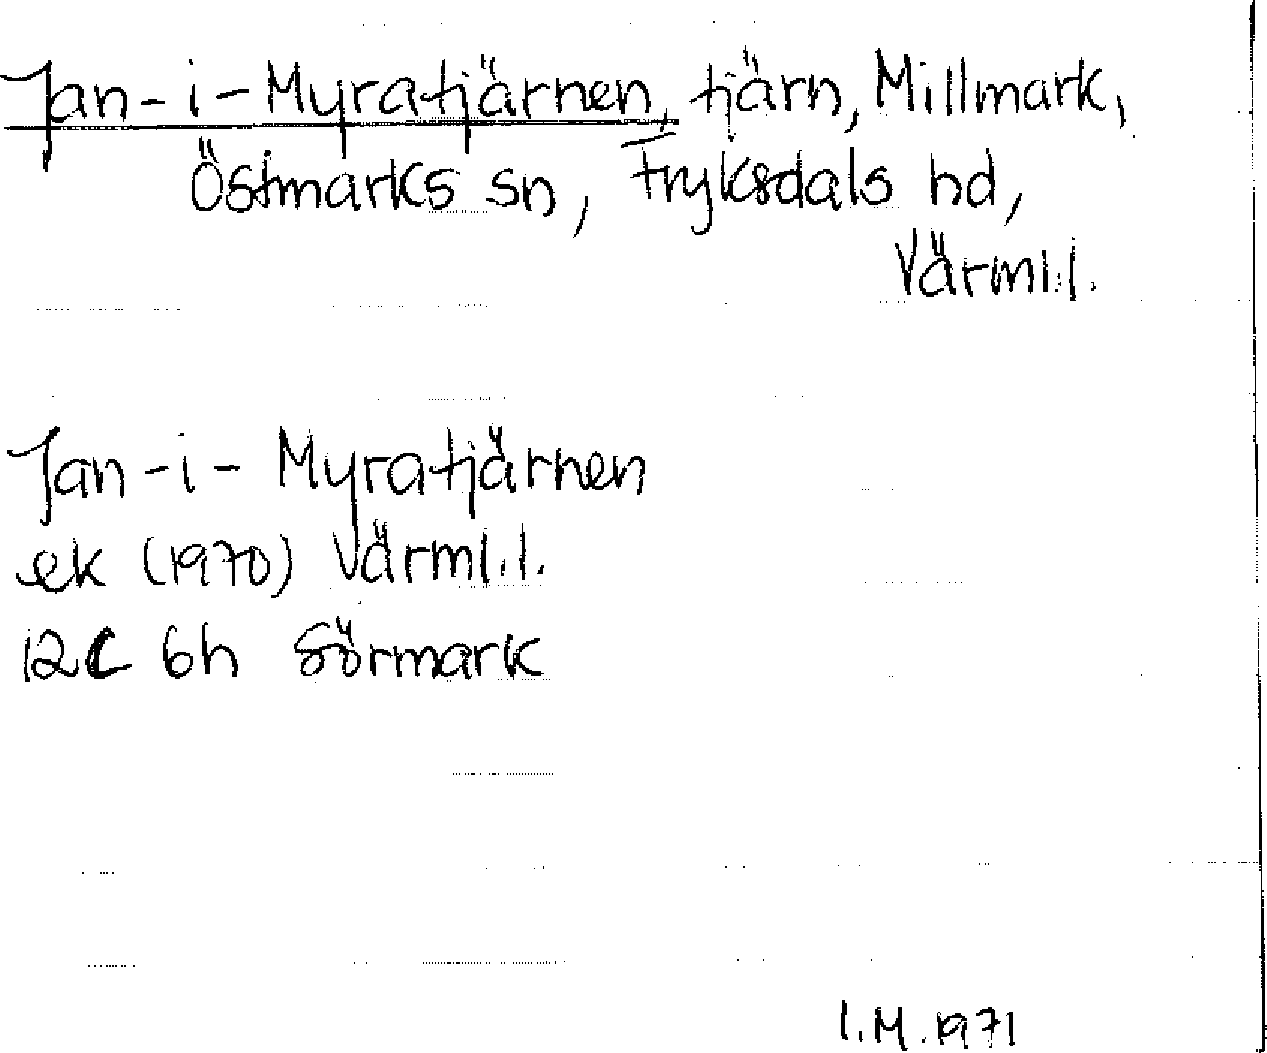 Jan-i-Myratjärnen, tjärn, Millmark,
Östmarks sn, Fryksdals hd,
Värml.l.
Jan-i-Myratjärnen
ek (1970) Värml.l.
12C 6h Sörmark
I.M.1971